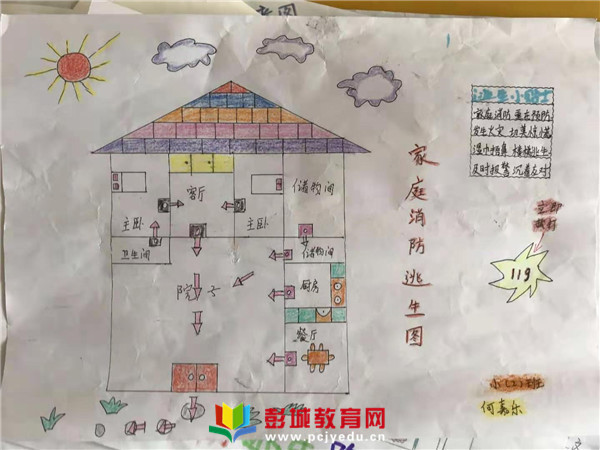 家庭消防逃生图
逃生小贴士
家庭消防 重在预防
发生火灾 切莫惊慌
湿巾捂鼻 楼梯逃生
及时报警 沉着应对
119
客厅
储物间
主卧
主卧
卫生间
储物间
院子
厨房
餐厅
小(2)班
何嘉乐
彭城教育网
www.pcjyedu.cn